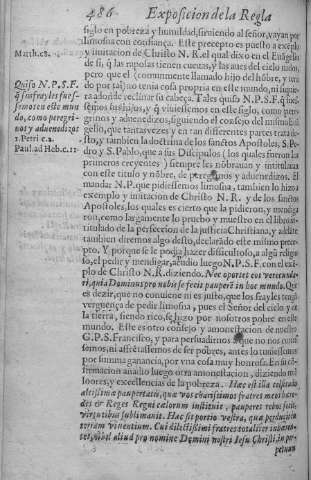 486 Exposicion de la Regla
siglo en pobreza y humildad, siruiendo al señor, vayan por
limosna con confiança. Este precepto es puesto a exẽplo
Matth. c8. y imitacion de Christo N. R. el qual dixo en el Euãgelio
de si, q̃ las raposas tienen cueuas, y las aues del cielo nidos,
pero que el (comunmente llamado hijo del hõbre, y tenido
por tal) no tenia cosa propria en este mundo, ni siquiera
Quiso N. P. S. F. adonde reclinar su cabeça. Tales quiso N. P. S. F. q̃ fuessemos
q̃ sus frayles fuessemos en este mundo, como peregrinos y aduenedizos
sus hijos, y q̃ viuiessemos en este siglo, como peregrinos
y aduenedizos, siguiendo el consejo del mismo Euãgelio,
que tantas vezes y en tan differentes partes trata desto,
1. Petri c 2. y tambien la doctrina de los sanctos Apostoles, S. Pedro
Paul. ad Heb. c. 11. y S. Pablo, que a sus Discipulos (los quales fueron los
primeros creyentes) siempre los nõbrauan y intitulauan
con este titulo y nõbre, de peregrinos y aduenedizos. El
mandar N. P. que pidiessemos limosna, tambien lo hizo a
exemplo y imitacion de Christo N. R. y de los sanctos
Apostoles, los quales es cierto que la pidieron, y mendigaron,
como largamente lo prueuo y muestro en el libro intitulado
de la perfeccion de la justicia Christiana, y adelante
tambien diremos algo desto, declarãdo este mismo precepto.
Y porque se le podia hazer difficultoso, a algũ religioso,
el pedir y mendigar, añadio luego N. P. S. F. con el exemplo
de Christo N. R. diziendo. Nec oportet eos verecundari,
quia Dominus pro nobis se fecit pauperẽ in hoc mundo. Que
es dezir, que no conuiene ni es justo, que los frayles tengã
verguença de pedir limosna, pues el Señor del cielo y de
la tierra, siendo rico, se hizo por nosotros pobre en este
mundo. Este es otro consejo y amonestacion de nuestro
G. P. S. Francisco, y para persuadirnos a que no nos corramos,
ni affrẽtassemos de ser pobres, antes lo tuuiessemos
por summa ganancia, por vna cosa muy honrosa. En su confirmacion
añadio luego otra amonestacion, diziendo mil
loores, y excellencias de la pobreza. Hæc est illa celsitudo
altissimæ paupertatis, quæ vos charissimos fratres meos hæredes
& Reges Regni cælorum instituit, pauperes rebus fecit,
virtutibus sublimauit. Hæc sit portio vestra, quæ perducit in
terram viuentium. Cui dilectissimi fratres totaliter inhærentes,
nihil aliud pro nomine Domini nostri Iesu Christi, in perpetuum